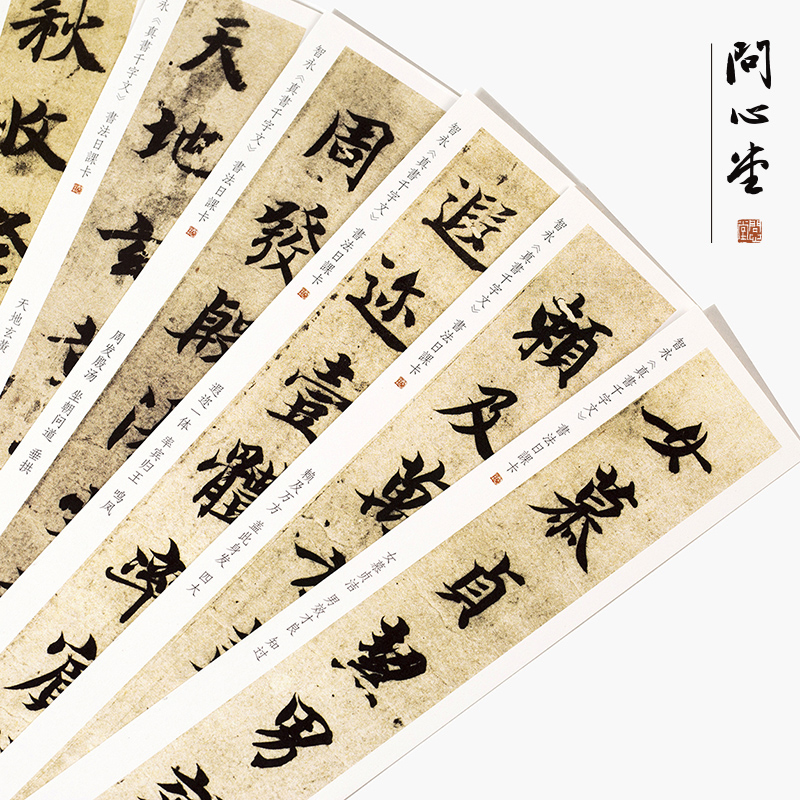 問心堂
秋收
永《真書千字文》 書法日課卡
天地玄
天地玄黄
智永《真書千字文》 書法日課卡
周發殷湯
周发殷汤 坐朝问道 垂拱
智永《真書千字文》 書法日課卡
遐迩壹體率賓
遐迩一体 率宾归王 鸣凤
智永《真書千字文》 書法日課卡
賴及萬方
赖及万方 盖此身发 四大
智永《真書千字文》 書法日課卡
女慕貞絜男
女慕贞洁 男效才良 知过